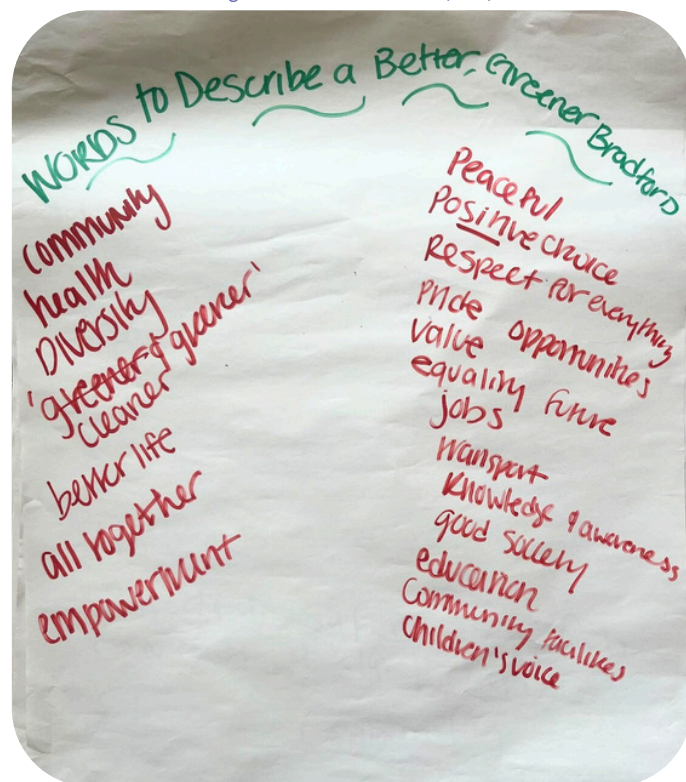 WORDS to Describe a Better, Greener Bradford
community
health
Diversity
'greener & greener'
cleaner
better life
all together
empowerment
Peaceful
Positive choice
Respect for everything
Pride opportunities
value
equality future
jobs
transport
Knowledge & awareness
good society
education
Community facilities
Children's voice